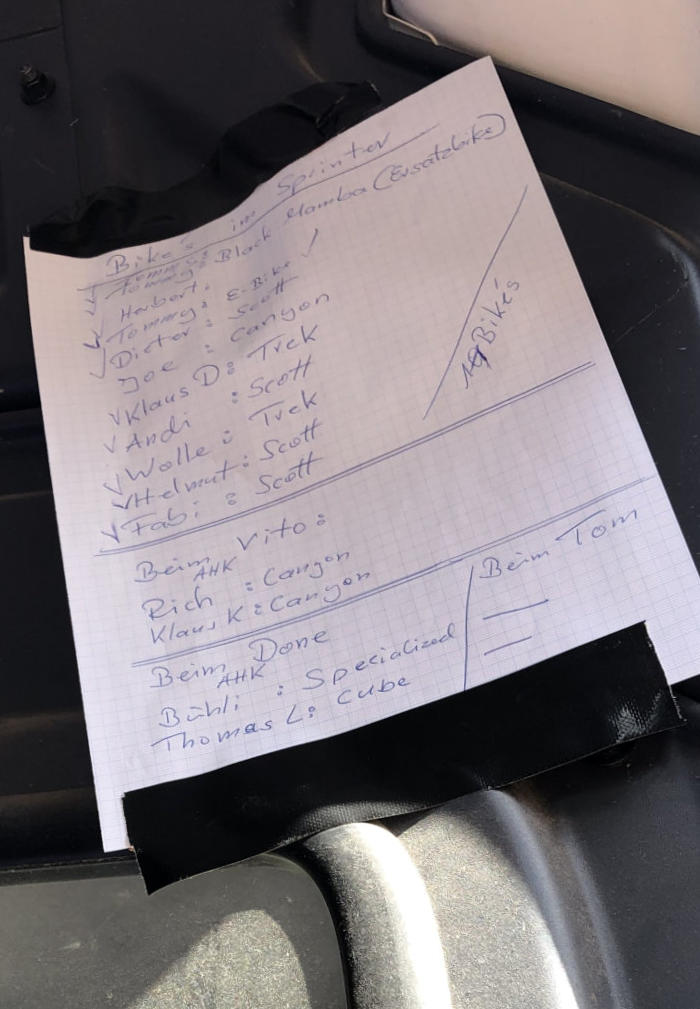 Bike's im Sprinter
Tommy: Black Mamba (Ersatzbike)
Herbert:
Tommy: E-Bike ✓
Dieter: Scott
Joe: Canyon
✓ Klaus D: Trek
✓ Andi: Scott
✓ Wolle: Trek
✓ Helmut: Scott
✓ Fabi: Scott
Bikés
Beim Vito:
AHK
Rich: Canyon
Klaus K: Canyon
Beim Done
AHK
Bühli: Specialized
Thomas L: Cube
Beim Tom